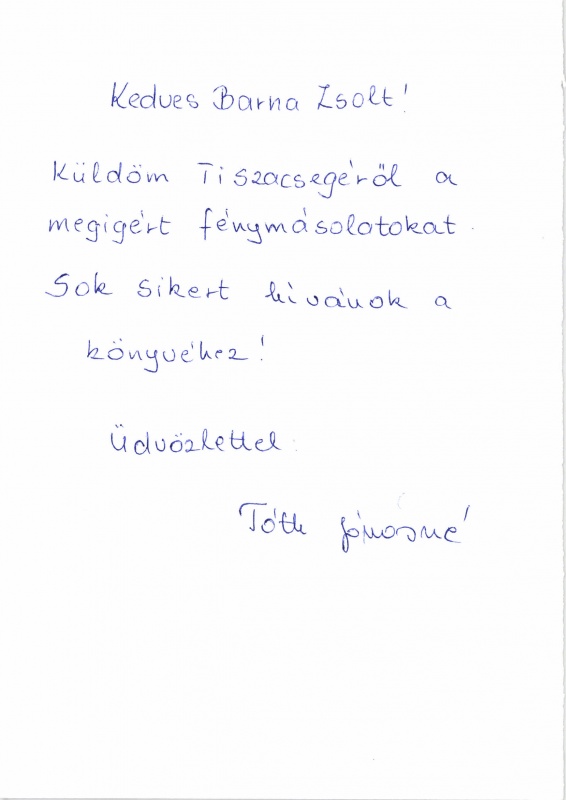 Kedves Barna Zsolt!
Küldöm Tiszacsegéről a
megigért fénymásolatokat.
Sok sikert kívánok a
könyvéhez!
Üdvözlettel:
Tóth Jánosné